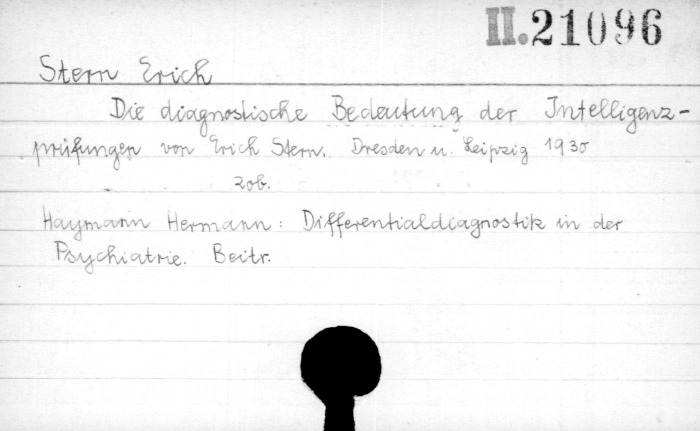 II.21096
Stern Erich
Die diagnostische Bedeutung der Intelligenz-
prüfungen von Erich Stern. Dresden u. Leipzig 1930
zob.
Haymann Hermann: Differentialdiagnostik in der
Psychiatrie. Beitr.